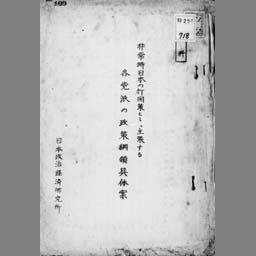 109
718
非常時日本の打開策として主張する
各党派の政策綱領具体案
日本政治経済研究所